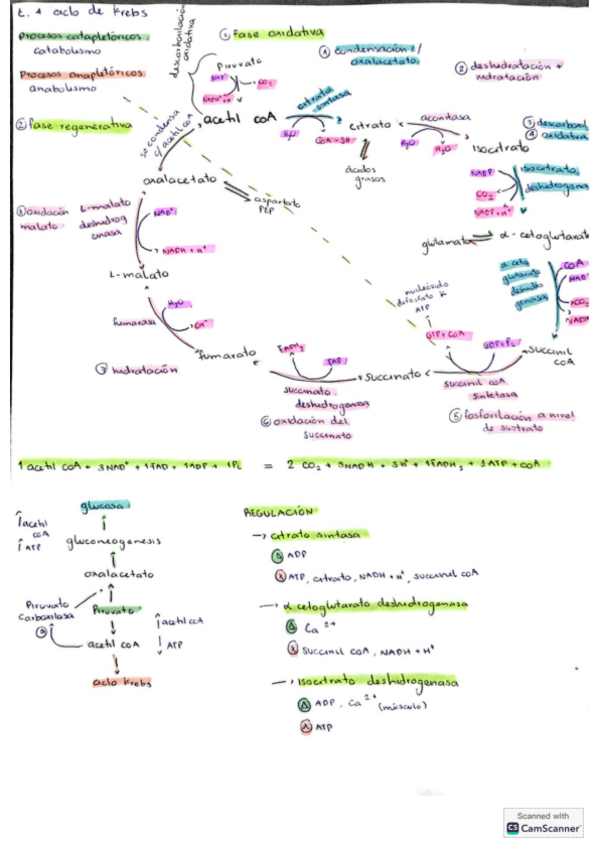 t. 4 ciclo de Krebs
Procesos catapletóricos
catabolismo
Procesos anapletóricos
anabolismo
descarboxilación
oxidativa
① Fase oxidativa
① condensación c/
oxalacetato
② deshidratación +
hidratación
Piruvato
NAD⁺
CO₂
NADH + H⁺
② fase regenerativa
se condensa
c/ acetil coA
acetil CoA
citrato
sintasa
H₂O
CoA - SH
citrato
aconitasa
H₂O
H₂O
Isocitrato
③ descarboxi
④ oxidativa
ácidos
grasos
NADP
CO₂
NADP + H⁺
isocitrato
deshidrogena
oxalacetato
aspartato
PEP
① oxidación
malato
L-malato
deshidrog
enasa
NAD⁺
NADH + H⁺
glutamato
α - cetoglutarato
L-malato
α ceto
glutarato
deshidro
genasa
CoA
NAD
CO₂
NADH
nucleósido
difosfato K
ATP
H₂O
OH⁻
fumarasa
GTP + CoA
GDP + Pi
fumarato
FADH₂
FAD
succinato
succinil
CoA
③ hidratación
succinato
deshidrogenasa
succinil coA
sintetasa
⑥ oxidación del
succinato
⑤ fosforilación a nivel
de sustrato
1 acetil CoA + 3NAD⁺ + 1FAD + 1ADP + 1Pi = 2 CO₂ + 3NADH + 3H⁺ + 1FADH₂ + 1ATP + CoA
glucosa
↑acetil
coA
↑ ATP
gluconeogénesis
oxalacetato
Piruvato
Carboxilasa
Piruvato
↑acetil coA
acetil CoA
↓ ATP
ciclo Krebs
REGULACIÓN
→ citrato sintasa
ADP
ATP, citrato, NADH + H⁺, succinil coA
→ α cetoglutarato deshidrogenasa
Ca²⁺
succinil coA, NADH + H⁺
→ isocitrato deshidrogenasa
ADP, Ca²⁺ (músculo)
ATP
Scanned with
CS CamScanner